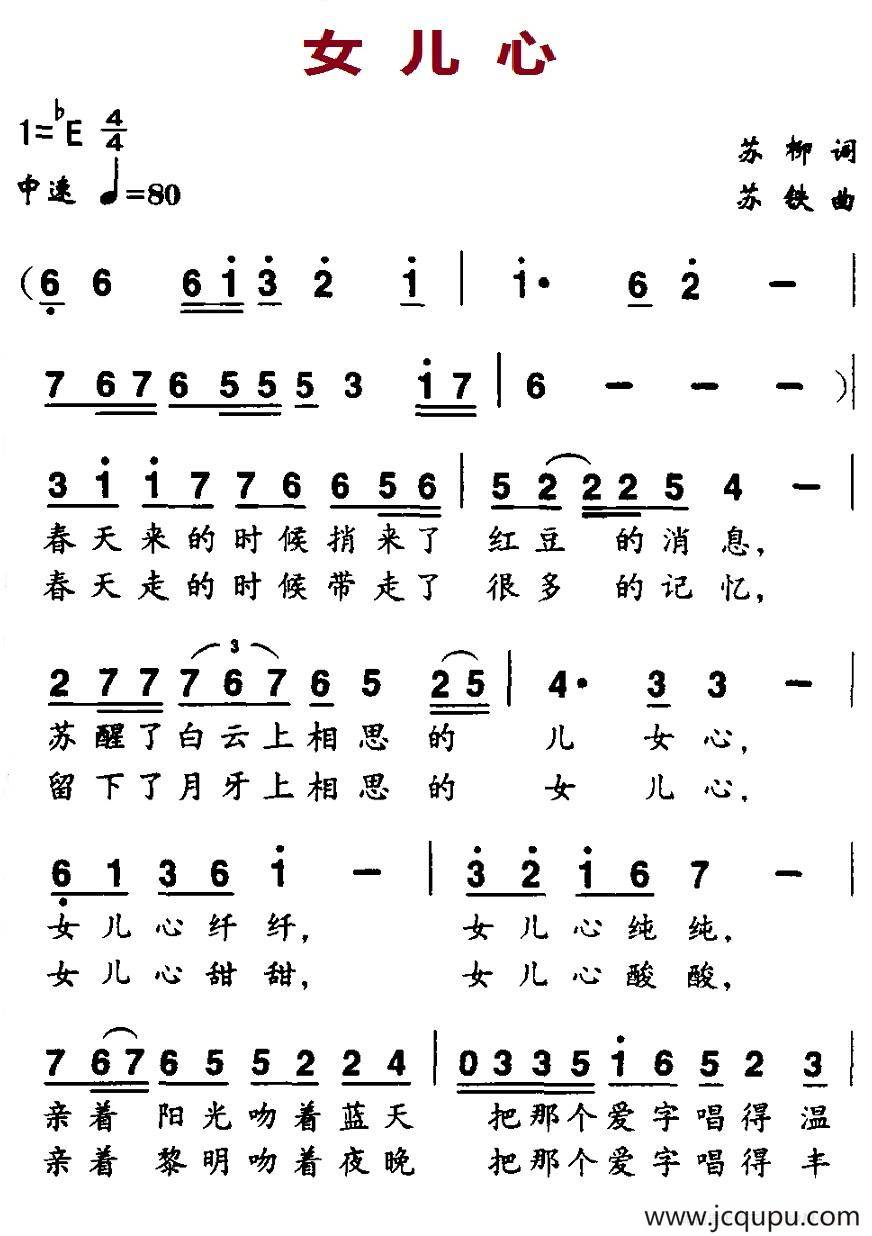 女儿心
1=♭E 4/4
苏柳词
中速 ♩=80
苏铁曲
(6̣ 6 6 1̇ 3̇ 2̇ 1̇ | 1̇· 6 2̇ - |
7 6 7 6 5 5 5 3 1̇ 7 | 6 - - - )|
3 1̇ 1̇ 7 7 6 6 5 6 | 5 2 2 2 5 4 - |
春天来的时候捎来了 红豆 的消息,
春天走的时候带走了 很多 的记忆,
2 7 7 7 6 7 6 5 2 5 | 4· 3 3 - |
苏醒了白云上相思的 儿 女心,
留下了月牙上相思的 女 儿心.
6̣ 1 3 6 1̇ - | 3̇ 2̇ 1̇ 6 7 - |
女儿心纤纤, 女儿心纯纯,
女儿心甜甜, 女儿心酸酸,
7 6 7 6 5 5 2 2 4 | 0 3 3 5 1̇ 6 5 2 3 |
亲着 阳光吻着蓝天 把那个爱字唱得温
亲着 黎明吻着夜晚 把那个爱字唱得丰
www.jcqupu.com